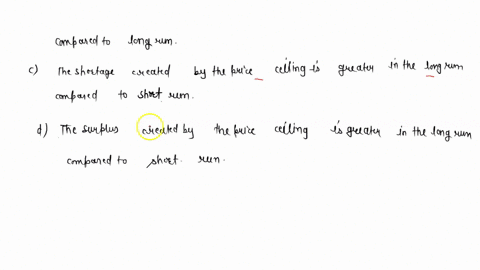 compared to long run.
c) The shortage created by the price ceiling is greater in the long run
compared to short run.
d) The surplus created by the price ceiling is greater in the long run
compared to short run.